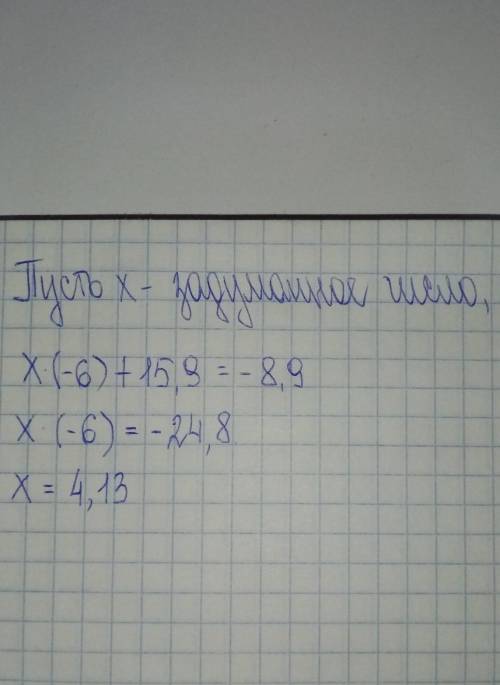 Пусть х - задуманное число,
х·(-6)+15,9 = -8,9
х·(-6) = -24,8
х = 4,13